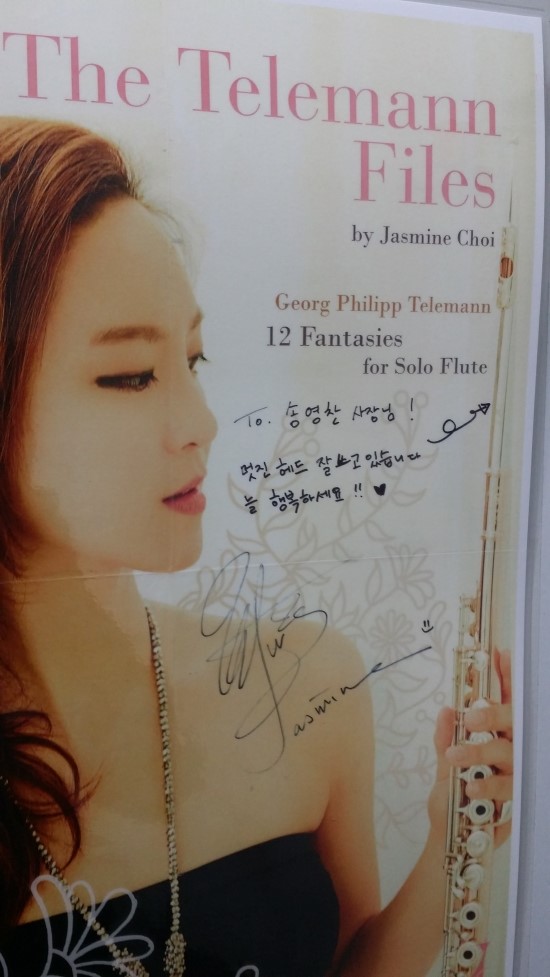 The Telemann
Files
by Jasmine Choi
Georg Philipp Telemann
12 Fantasies
for Solo Flute
To. 송영찬 사장님!
멋진 헤드 잘 쓰고 있습니다
늘 행복하세요!! ♥
Jasmine